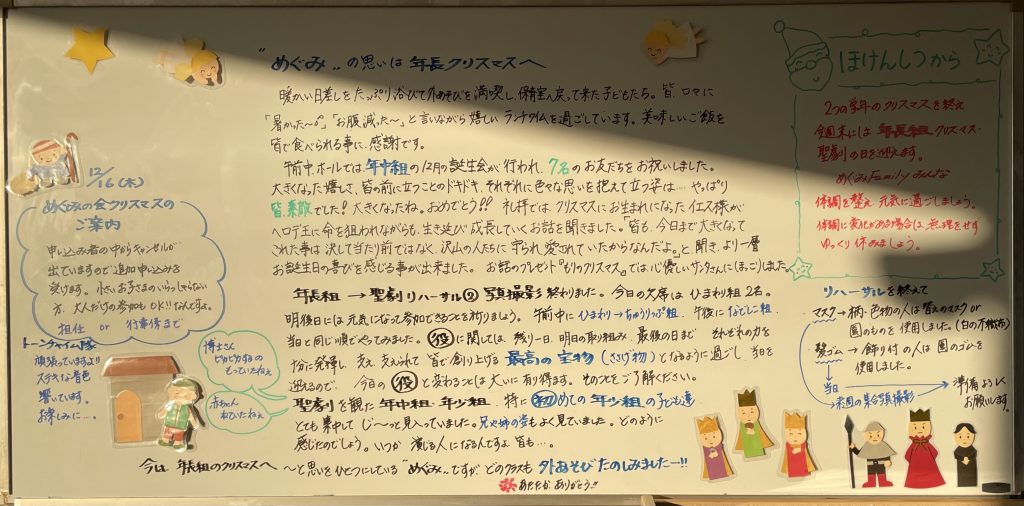 "めぐみ"の思いは 年長クリスマスへ
暖かい日差しをたっぷり浴びて外あそびを満喫し、保育室へ戻って来た子どもたち。皆、口々に
「暑かった〜」「お腹減った〜」と言いながら嬉しいランチタイムを過ごしています。美味しいご飯を
皆で食べられる事に、感謝です。
午前中ホールでは、年中組の12月の誕生会が行われ、7名のお友だちをお祝いしました。
大きくなった嬉しさ、皆の前に立つことのドキドキ、それぞれに色々な思いを抱えて立つ姿は…やっぱり
皆、素敵でした!大きくなったね。おめでとう!!礼拝では、クリスマスにお生まれになったイエス様が
ヘロデ王に命を狙われながらも、生き延び成長していくお話を聞きました。「皆も、今日まで大きくなって
これた事は決して当たり前ではなく、沢山の人たちに守られ、愛されていたからなんだよ。」と聞き、より一層
お誕生日の喜びを感じる事が出来ました。お話のプレゼント『もりのクリスマス』では、心優しいサンタさんにほっこりしました
年長組→聖劇リハーサル② 写真撮影 終わりました。今日の欠席は ひまわり組2名。
明後日には元気になって参加できることを祈りましょう。午前中に ひまわり→ちゅうりっぷ組、午後に なでしこ組、
当日と同じ順でやってみました。役に関しては、残り一日、明日の取り組み、最後の日まで それぞれの力を
十分に発揮し、支え、支えられて 皆で創り上げる 最高の宝物(ささげ物)となるように過ごし、当日を
迎えるので、今日の役と変わることは大いに有り得ます。その点をご了解ください。
聖劇を観た年中組・年少組、特に初めての年少組の子ども達
とても集中して じ〜っと見入っていました。兄や姉の姿もよく見ていました。どのように
感じたのでしょう。いつか 演じる人になるんですよ、皆も…
今は、年長組のクリスマスへ 〜と思いをひとつにしている"めぐみ"ですが どのクラスも 外あそび たのしみましたー!!
あたたか、ありがとう!!
12/16(木)
めぐみの会クリスマスの
ご案内
申し込み者の中からキャンセルが
出ていますので追加申し込みを
受けます。小さいお子さまのいらっしゃらない
方、大人だけの参加もOK!!なんですよ。
担任 or 行事係まで
トーンチャイム隊
頑張っていますよ!
ステキな音色
響いています。
お楽しみに…。
博士さん
ピカピカするの
もっていたねぇ
赤ちゃん
ねていたねぇ
ほけんしつから
2つの学年のクリスマスを終え
今週末には 年長組クリスマス・
聖劇の日を迎えます。
めぐみFamilyみんな
体調を整え 元気に過ごしましょう。
体調に変化がある場合は、無理をせず
ゆっくり休みましょう。
リハーサルを終えて
マスク→柄・色物の人は替えのマスク or
園のものを使用しました。(白の不織布)
髪ゴム→飾り付の人は園のゴムを
使用しました。
当日
来週の集合写真撮影
準備よろしく
お願いします。